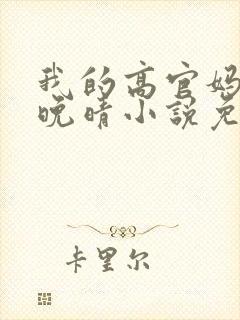 我的高官妈
晚晴小说免
卡里尔